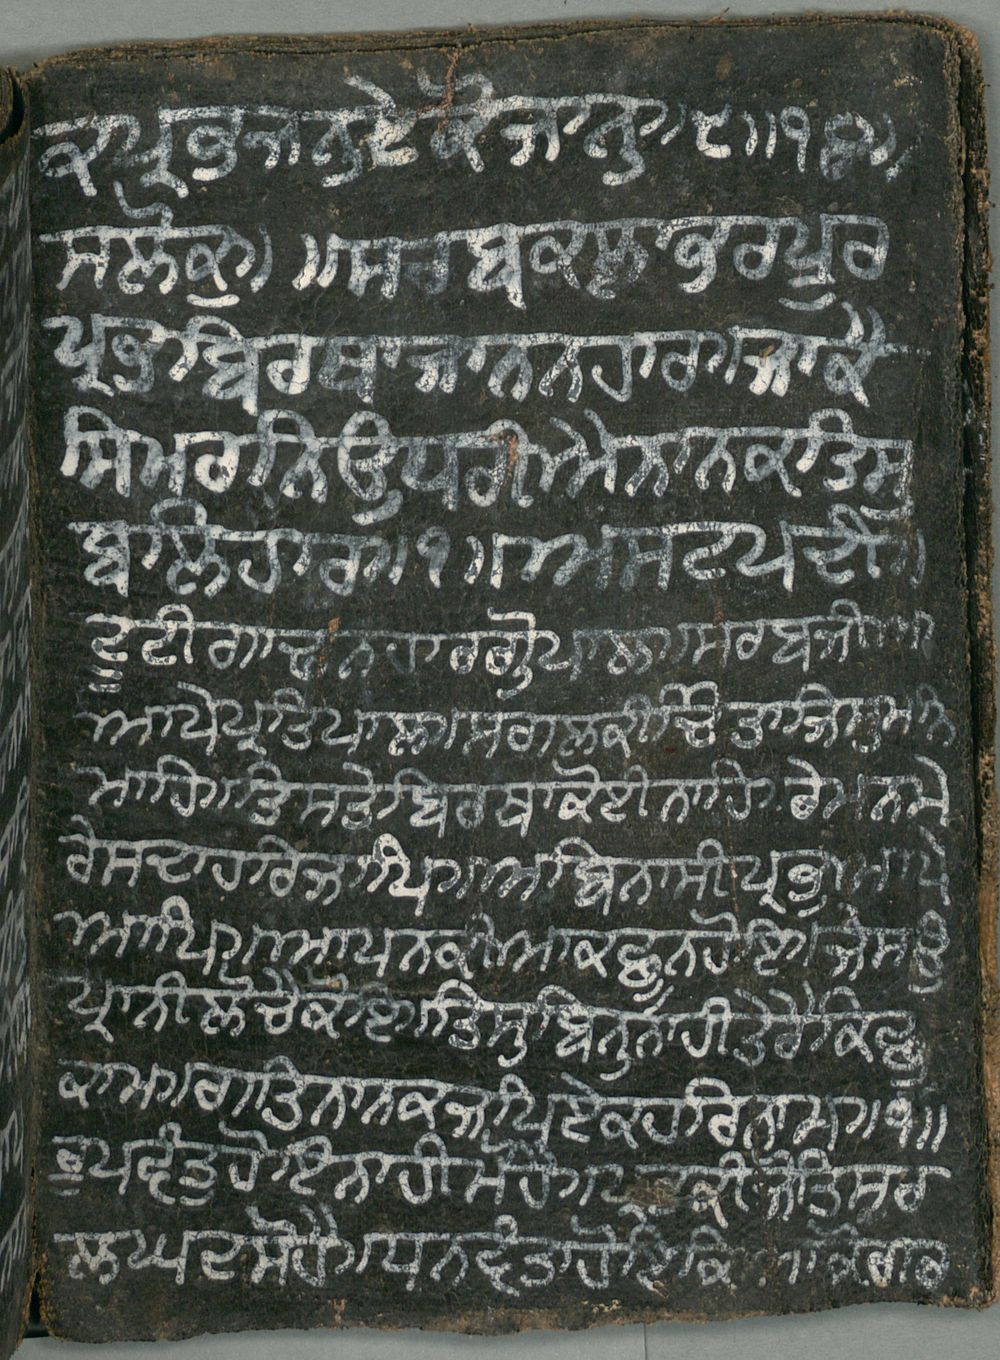 ਕ ਪ੍ਰਭ ਜਨੁ ਏਕੋ ਜਾਨੁ।੮॥੧੪॥
ਸਲੋਕੁ॥ਸਰਬ ਕਲਾ ਭਰਪੂਰ
ਪ੍ਰਭ ਬਿਰਥਾ ਜਾਨਨਹਾਰ।ਜਾ ਕੈ
ਸਿਮਰਨਿ ਉਧਰੀਐ ਨਾਨਕ ਤਿਸੁ
ਬਲਿਹਾਰ॥੧॥ਅਸਟਪਦੀ॥
ਟੂਟੀ ਗਾਢਨਹਾਰ ਗੋੁਪਾਲ।ਸਰਬ ਜੀਆ
ਆਪੇ ਪ੍ਰਤਿਪਾਲ।ਸਗਲ ਕੀ ਚਿੰਤਾ ਜਿਸੁ ਮਨਿ
ਮਾਹਿ।ਤਿਸ ਤੇ ਬਿਰਥਾ ਕੋਈ ਨਾਹਿ।ਰੇ ਮਨ ਮੇ
ਰੈ ਸਦਾ ਹਰਿ ਜਾਪਿ।ਅਬਿਨਾਸੀ ਪ੍ਰਭੁ ਆਪੇ
ਆਪਿ।ਆਪਨ ਕੀਆ ਕਛੂ ਨ ਹੋਇ।ਜੇ ਸਉ
ਪ੍ਰਾਨੀ ਲੋਚੈ ਕੋਇ।ਤਿਸੁ ਬਿਨੁ ਨਾਹੀ ਤੇਰੈ ਕਿਛੁ
ਕਾਮ।ਗਤਿ ਨਾਨਕ ਜਪਿ ਏਕ ਹਰਿ ਨਾਮ।੧॥
ਰੂਪਵੰਤੁ ਹੋਇ ਨਾਹੀ ਮੋਹੈ।ਪ੍ਰਭ ਕੀ ਜੋਤਿ ਸਗ
ਲ ਘਟ ਸੋਹੈ।ਧਨਵੰਤਾ ਹੋਇ ਕਿਆ ਕੋ ਗਰਬ